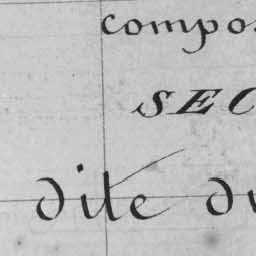 compo
SEC
dite du